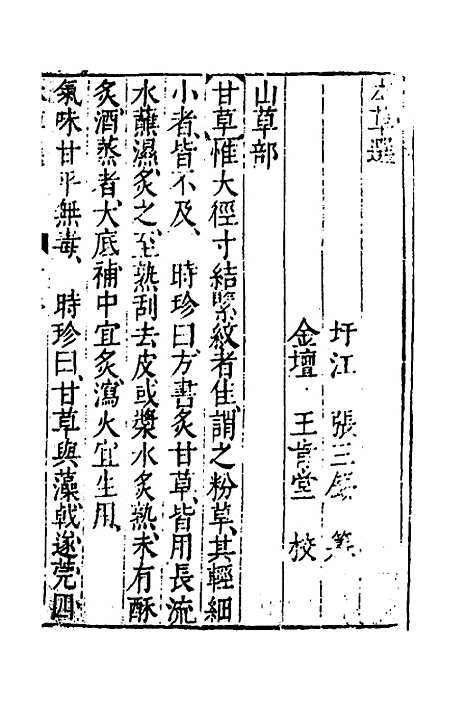 本草選
盱江 張三錫 纂
金壇 王肯堂 校
山草部
甘草惟大徑寸結緊紋者佳謂之粉草其輕細
小者皆不及、 時珍曰方書炙甘草皆用長流
水蘸濕炙之至熟刮去皮或漿水炙熟未有酥
炙酒蒸者大底補中宜炙瀉火宜生用
氣味甘平無毒、 時珍曰甘草與藻戟遂芫四